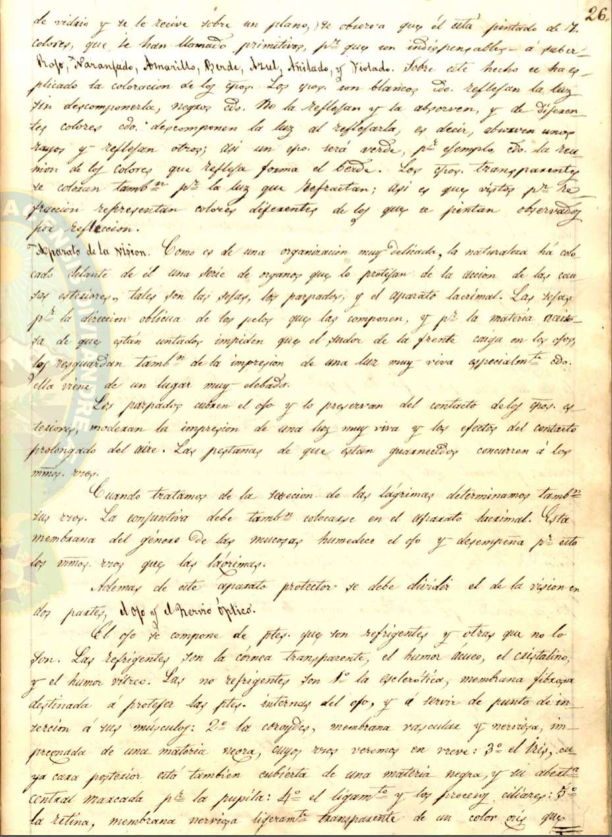 26.
de vidrio y se le recive sobre un plano, se observa que él está pintado de 7.
colores, que se han llamado primitivos, pr. que son indispensables á saber
Rojo, Naranjado, Amarillo, Berde, Azul, Añilado, y Violado. Sobre este hecho se ha es-
plicado la coloracion de los cpos. Los cpos. son blancos cdo. reflejan la luz
sin descomponerla, negros cdo. No la reflejan y la absorven, y de diferen-
tes colores cdo. descomponen la luz al reflejarla, es decir, absorven unos
rayos y reflejan otros; asi un cpo. será verde, pr. ejemplo cdo. la reu-
nion de los colores que refleja forma el berde. Los cpos. transparentes
se coloran tambn. pr. la luz que refractan; asi es que vistos pr. re-
fraccion representan colores diferentes de los que se pintan observados
por reflección.
Aparato de la vision. Como es de una organizacion muy delicada, la naturaleza há colo
cado delante de él una serie de organos que lo protejan de la accion de las cau
sas esteriores, tales son las sejas, los parpados, y el aparato lacrimal. Las sejas
pr. la direccion oblicua de los pelos que las componen, y pr. la materia
sa de que están untados impiden que el sudor de la frente caiga en los ojos,
los resguardan tambn. de la impresion de una luz muy viva especialmte. cdo.
ella viene de un lugar muy elebado.
Los parpados cubren el ojo y lo preservan del contacto de los cpos. es
teriores, moderan la impresion de una luz muy viva y los efectos del contacto
prolongado del aire. Las pestañas de que estan guarnecidos concurren á los
mmos. usos.
Cuando tratamos de la secrecion de las lágrimas determinamos tambn.
sus usos. La conjuntiva debe tambn. colocarse en el aparato lacrimal. Esta
membrana del género de las mucosas humedece el ojo y desempeña pr. esto
los mmos. usos que las lágrimas.
Ademas de este aparato protector se debe dividir el de la vision en
dos partes, el ojo y el nervio óptico.
El ojo se compone de ptes. que son refrigentes y otras que no lo
son. Las refrigentes son la córnea transparente, el humor ácueo, el cristalino,
y el humor vítreo. Las no refrigentes son 1º la esclerótica, membrana fibrosa
destinada a protejer las ptes. internas del ojo, y á servir de punto de in-
sercion á sus músculos: 2º la coroydes, membrana vascular y nerviosa, im-
pregnada de una materia negra, cuyos usos veremos en breve: 3º el Iris, cu
ya cara posterior está tambien cubierta de una materia negra, y su abertª
central marcada pr. la pupila: 4º el ligamto. y los procesos ciliares: 5º
la retina, membrana nerviosa ligeramte. transparente de un color gris que